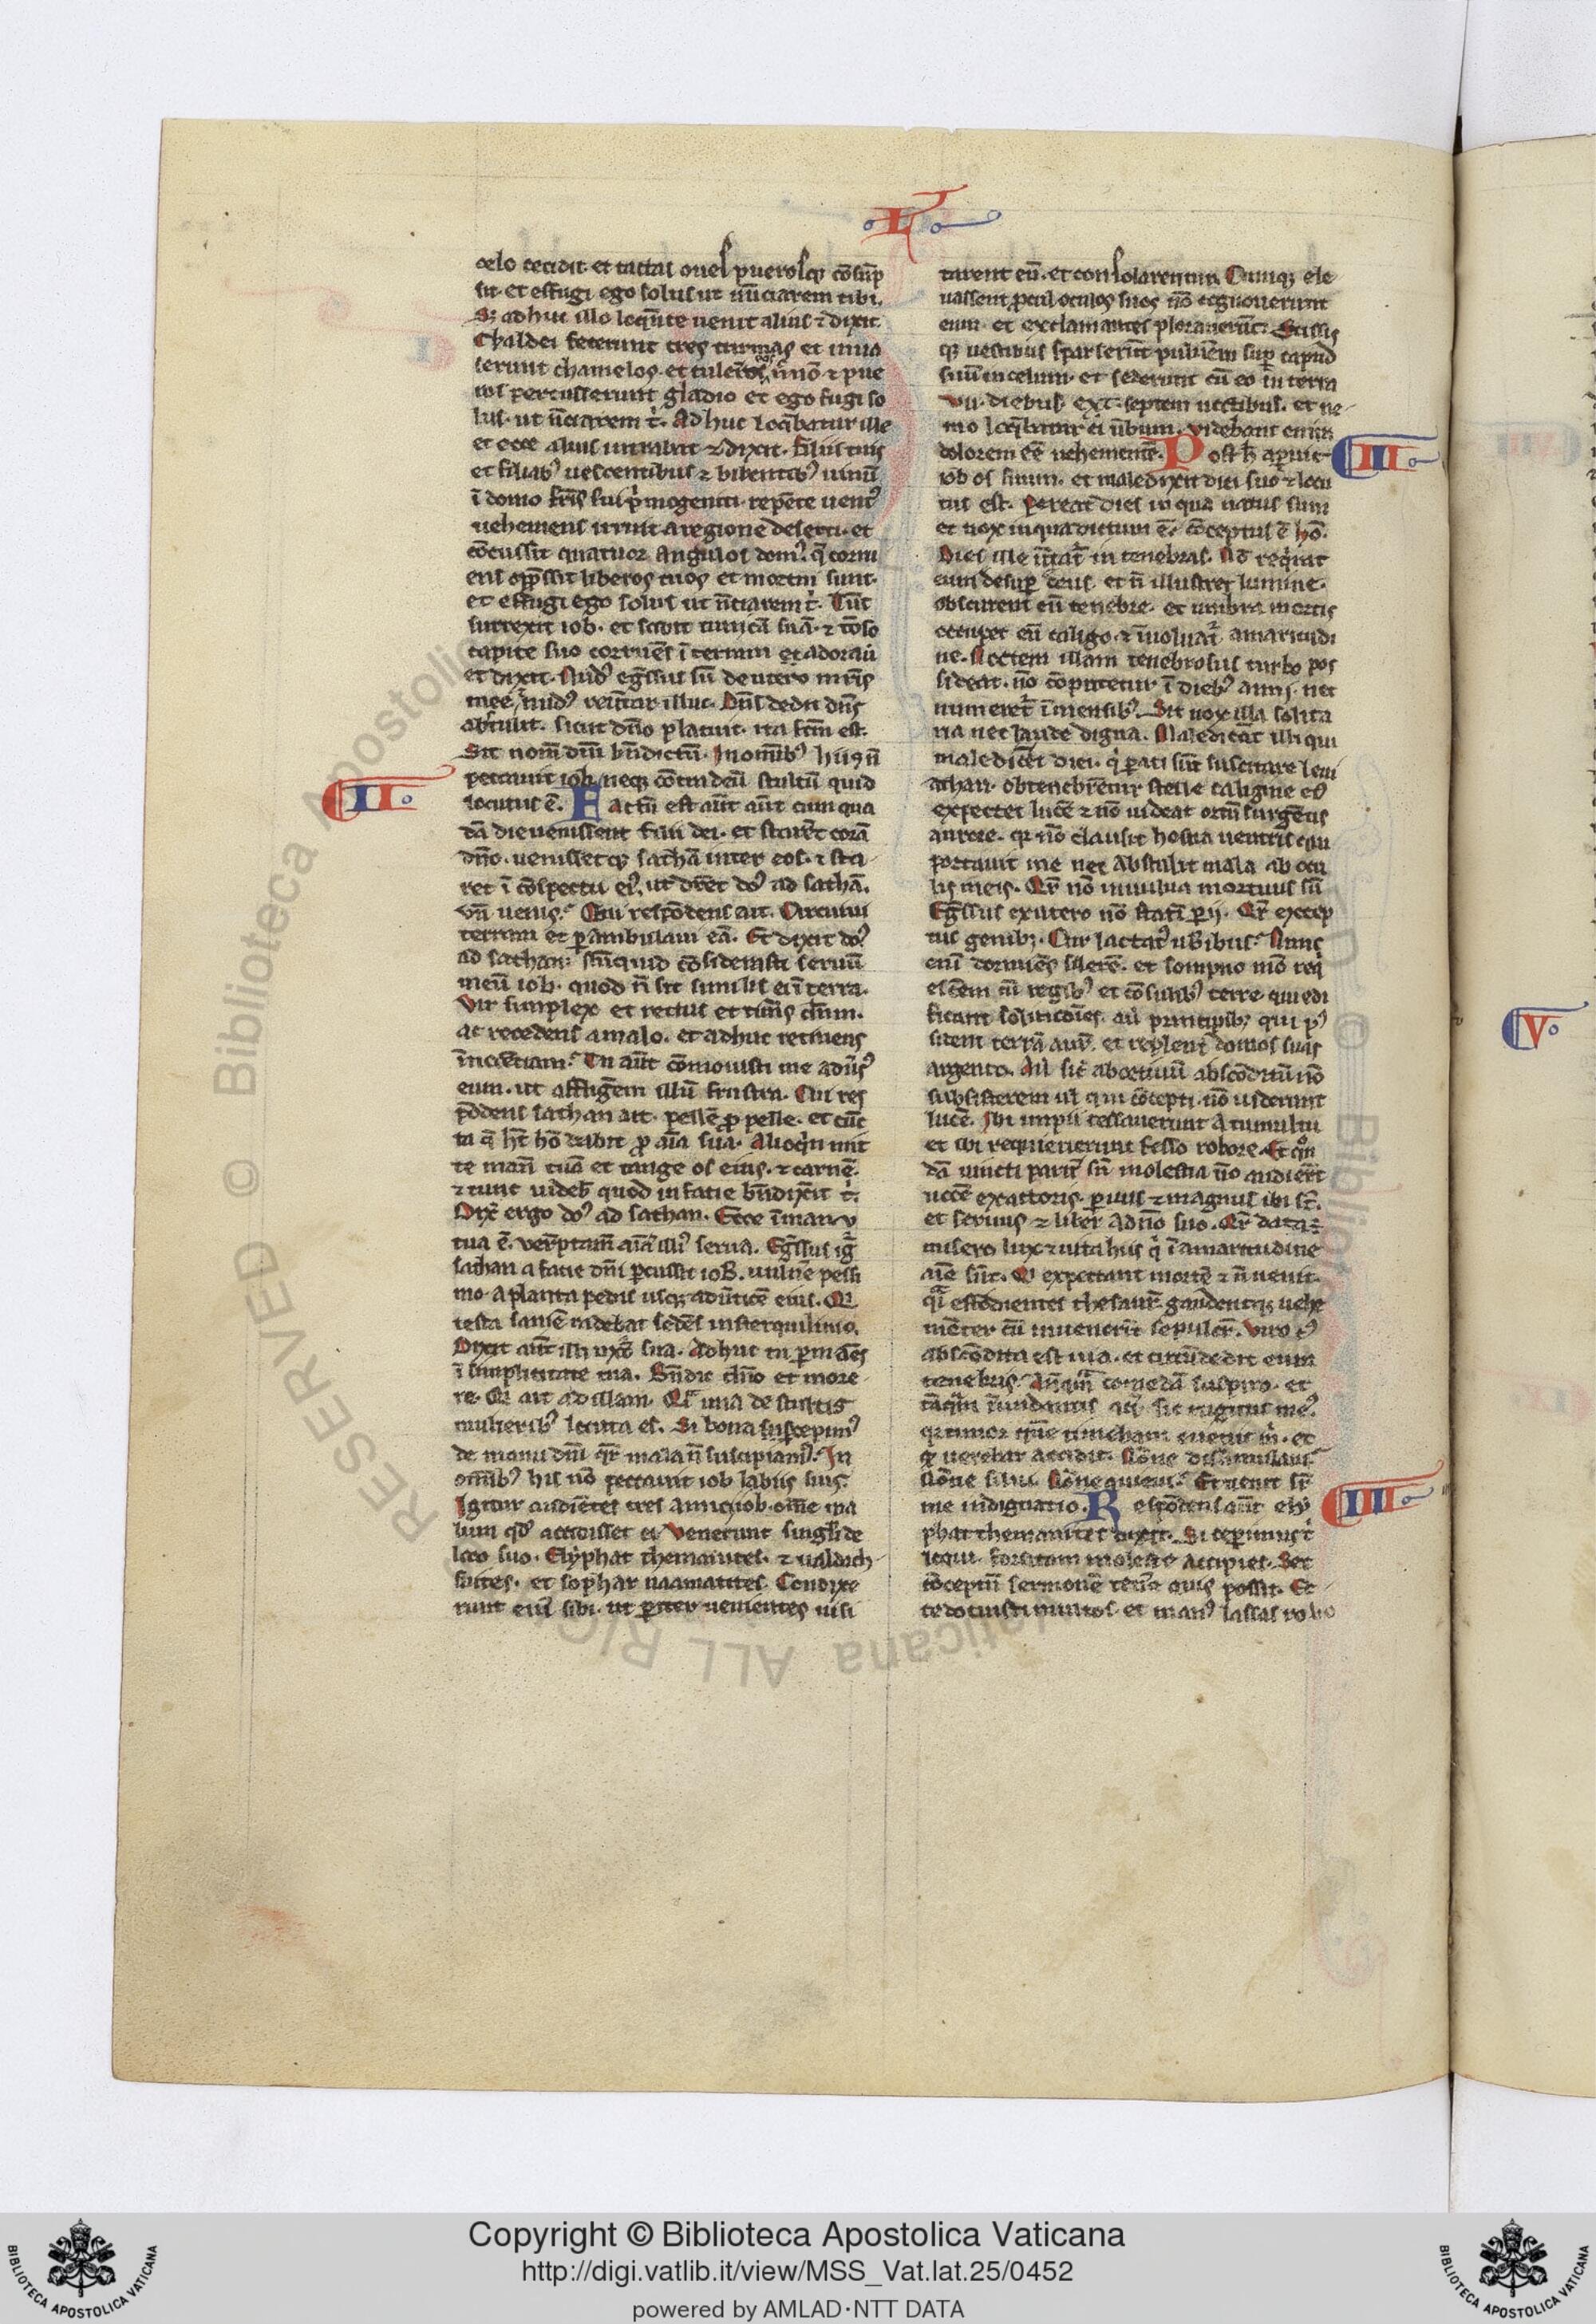 L
celo cecidit et tactas oues puerosq; cōsūp
sit et effugi ego solus ut nūciarem tibi.
Sꝫ adhuc illo loqn̄te uenit alius ⁊ dixit.
Chaldei fecerunt tres turmas et inua
serunt chamelos et tulerūt
ros percusserunt gladio et ego fugi so
lus ut nūciarem t̄. Adhuc loq̄batur ille
et ecce alius intrabit ⁊ dixit. filiis tuis
et filiabꝰ uescentibus ⁊ bibentibꝰ uinū
ī domo fr̄is sui p̄mogeniti repēte uentꝰ
uehemens irruit a regione deserti et
cōcussit quatuor angulos domꝰ q̄ corru
ens opp̄ssit liberos tuos et mortui sunt
et effugi ego solus ut nūciarem t̄. Tūc
surrexit iob et scidit tunicā suā ⁊ tōso
capite suo corruēs ī terram et adorauit
et dixit. Nudꝰ eḡssus sū de utero mr̄is
mee nudꝰ reūtar illuc. Dn̄s dedit dn̄s
abstulit. sicut dn̄o placuit ita fc̄m est.
Sit nom̄ dn̄i bn̄dictū. In om̄ibꝰ hiis n̄
peccauit iob neqꝫ cōtra deū stultū quid
II.
locutus ē. Factū est aūt cum qua
dā die uenissent filii dei et starēt corā
dn̄o uenisset qꝫ sathā inter eos ⁊ sta
ret ī cōspectu eiꝰ ut dic̄et dn̄s ad sathā.
Vn̄ uenis. Qui respōdens ait. Circuiui
terram et perambulaui eā. Et dixit dn̄s
ad sathan. Nūquid cōsiderasti seruū
meū iob quod n̄ sit similis ei ī terra.
Vir simplex et rectus et timēs deum
ac recedens a malo et adhuc retinens
īnocētiam. Tu aūt cōmouisti me aduersꝰ
eum ut affligēm illū frustra. Cui res
pōdens sathan ait. pellē pro pelle et cūc
ta q̄ h̄t hō dabit pro aīa sua. Alioqn̄ mit
te manū tuā et tange os eius ⁊ carnē
⁊ tunc uideb̄ quod in facie bn̄dixerit t̄.
Dix̄ ergo dn̄s ad sathan. Ecce ī manu
tua ē uerūptam̄ aīam illiꝰ serua. Eḡssus igr̄
sathan a facie dn̄i percussit iob uulnē pessi
mo a planta pedis usqꝫ ad uerticē eius. Qui
testa saniē radebat sedēs in sterquilinio.
Dixit aūt illi uxor sua. Adhuc tu permanēs
ī simplicitate tua. Bn̄dic dn̄o et more
re. Qui ait ad illam. Q̄si una de stultis
mulieribꝰ locuta es. Si bona suscepimꝰ
de manu dn̄i qr̄ mala n̄ suscipiamꝰ. In
om̄ibꝰ his nō peccauit iob labiis suis.
Igitur audiētes tres amici iob ōme ma
lum qd̄ accidisset ei uenerunt singl̄i de
loco suo. Elyphat themanites ⁊ baldach
suites et sophar naamatites. Condixe
runt enī sibi ut pariter uenientes uisi
tarent eū et consolarentur. Cumqꝫ ele
uassent procul oculos suos nō cognouerunt
eum et exclamantes plorauerūt. Scissis
qꝫ uestibus sparserūt puluērem super capud
suū in celum et sederunt cū eo in terra
VII diebus ex t̄ septem noctibus et ne
mo loq̄batur ei uerbum. Videbant enim
dolorem eē uehementē. Post h̄ aperuit
III.
iob os suum et maledixit diei suo ⁊ locu
tus est. Pereat dies in qua natus sum
et nox in qua dictum ē. cōceptus ē hō.
Dies ille uertat̄ in tenebras. Nō requirat
eum desuper deus et n̄ illustret lumine
obscurent eū tenebre et umbra mortis
occupet eū caligo ⁊ inuoluat̄ amaritudi
ne. Noctem illam tenebrosus turbo pos
sideat. nō cōputetur ī diebꝰ anni nec
numeret̄ ī mensibꝰ. Sit nox illa solita
ria nec laude digna. Maledicāt illi qui
maledicūt diei qui parati sūt suscitare leui
athan. obtenebrētur stelle caligine eiꝰ
expectet lucē ⁊ nō uideat ortū surgētis
aurore. qꝫ nō clausit hostia uentris qui
portauit me nec abstulit mala ab ocu
lis meis. Qr̄ nō in uulua mortuus sū
Eḡssus ex utero nō statī perii. Qr̄ excep
tus genibꝫ. Cur lactatꝰ uberibus. Nunc
enī dormiēs silerē et sompno meo req̄
escerem cū regibꝰ et cōsulibꝰ terre qui edi
ficant solitudines. aut principibꝫ qui pos
sident terrā aurū et replent domos suas
argento. Aut sicut abortiuū abscōditū nō
subsisterem uel qui cōcepti nō uiderunt
lucē. Ibi impii cessauerunt a tumultu
et ibi requieuerunt fessi robore. Et quon
dā uincti pariter sn̄ molestia nō audierūt
uocē exactoris. paruus ⁊ magnus ibi sūt
et seruus ⁊ liber a dn̄o suo. Qr̄ data ē
misero lux ⁊ uita his qui ī amaritudine
aīe sūt. Qui expectant mortē ⁊ n̄ uenit
quasi effodientes thesaurū gaudentqꝫ uehe
mēter cū inuenerīt sepulcrū. Viro cuiꝰ
abscōdita est uia et circūdedit eum
tenebris. Anteq̄m comedā suspiro et
tāq̄m inundantis aque sic rugitus meꝰ.
qꝫ timor quē timebam euenit m̄ et
qd̄ uerebar accidit. Nōne dissimulaui.
Nōne silui. Nōne quieui. Et uenit sr̄
me indignatio. Respōdens aūt ely
IIII.
phat themanites dixit. Si ceperimus t̄
loqui forsitam moleste accipies. Sed
cōceptū sermonē tenere quis possit. Ec
ce docuisti multos et manꝰ lassas robo
V.
RESERVED © Biblioteca Apostolica Vaticana ALL RIGHTS
Copyright © Biblioteca Apostolica Vaticana
http://digi.vatlib.it/view/MSS_Vat.lat.25/0452
powered by AMLAD·NTT DATA
BIBLIOTECA APOSTOLICA VATICANA
BIBLIOTECA APOSTOLICA VATICANA